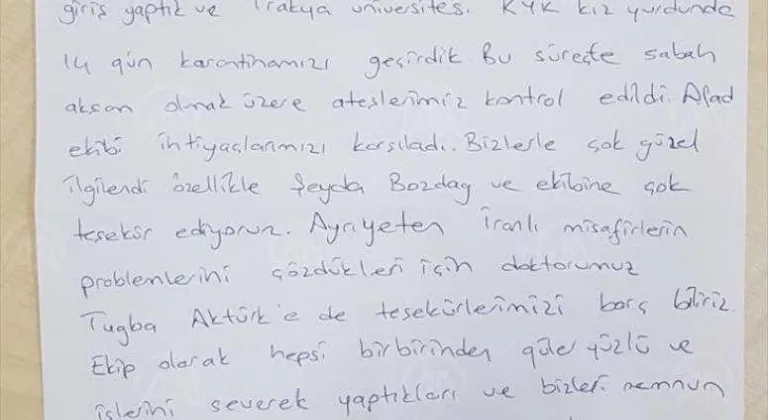 giriş yaptık ve Trakya üniversitesi KYK kız yurdunda
14 gün karantinamızı geçirdik Bu süreçte sabah
akşam olmak üzere ateşlerimiz kontrol edildi. Afad
ekibi ihtiyaçlarımızı karşıladı. Bizlerle çok güzel
ilgilendi özellikle Şeyda Bozdag ve ekibine çok
teşekür ediyorum. Ayrıyeten İranlı misafirlerin
problemlerini çözdükleri için doktorumuz
Tugba Aktürk'e de teşekürlerimizi borç biliriz.
Ekip olarak hepsi birbirinden güler yüzlü ve
işlerini severek yaptıkları ve bizleri memnun